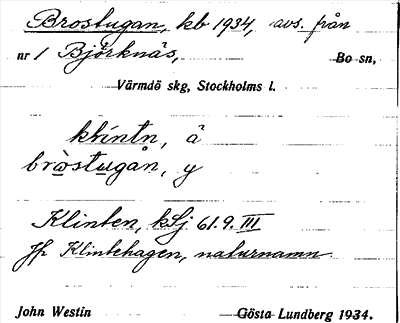 Brostugan, kb 1934, avs. från
nr 1 Björknäs, Bo sn,
Värmdö skg, Stockholms l.
klintn, ä
bròstugån, y
Klinten, kSj 61.9. III
Jfr Klintehagen, naturnamn
John Westin Gösta Lundberg 1934.